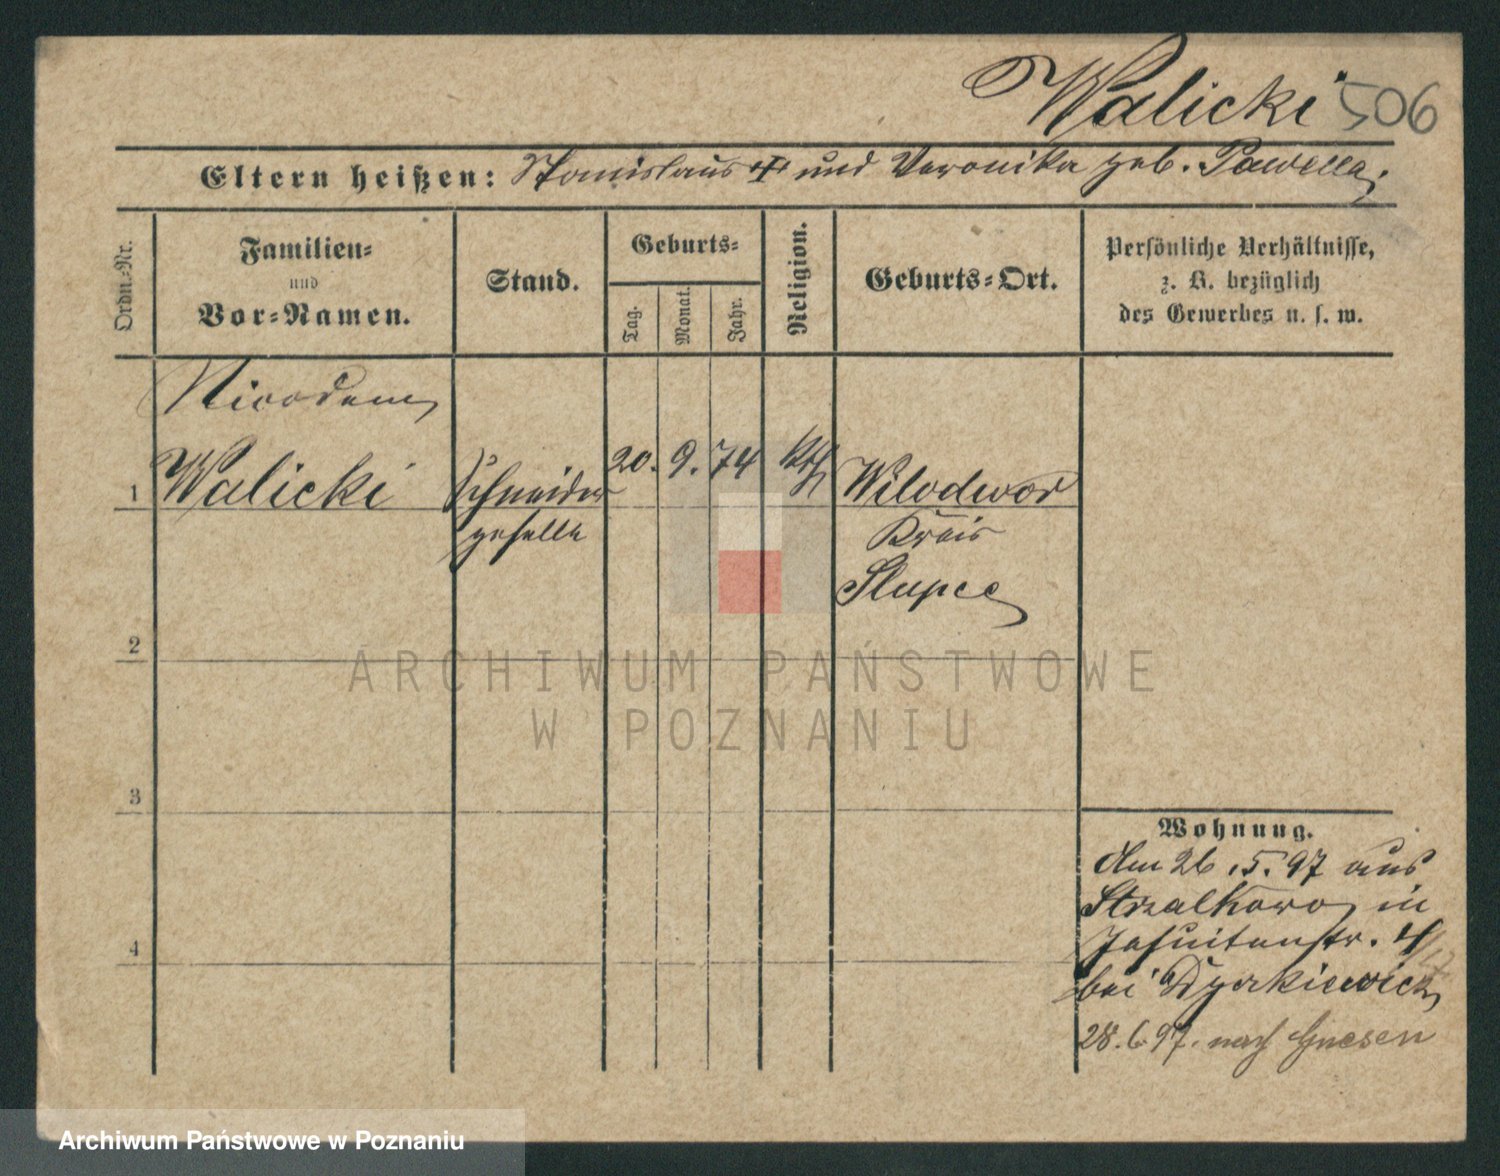 Walicki 506
Eltern heißen: Stanislaus † und Veronika geb. Pawella.
Ordn.-Nr.
Familien-
und
Vor-Namen.
Stand.
Geburts-
Tag.
Monat.
Jahr.
Religion.
Geburts-Ort.
Persönliche Verhältnisse,
z. B. bezüglich
des Gewerbes u. s. w.
Nicodem
1 Walicki Schneider 20. 9. 74 kth Wilodwor
geselle Kreis
Slupce
2
3
4
Wohnung.
Am 26.5.97 aus
Strzalkowo in
Jesuitenstr. 4/
bei Dyrkiewicz
28.6.97. nach Gnesen
ARCHIWUM PAŃSTWOWE
W POZNANIU
Archiwum Państwowe w Poznaniu